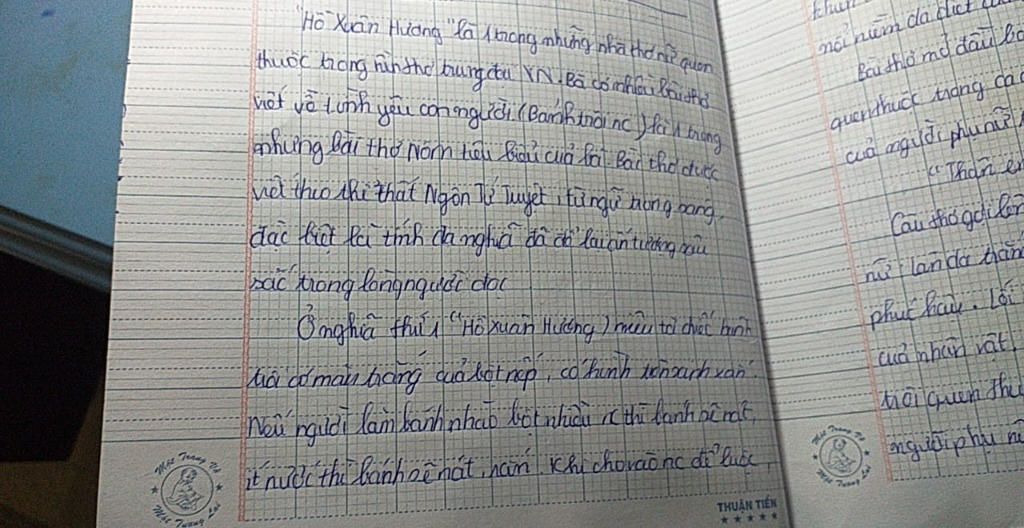 "Hồ Xuân Hương" là 1 trong những nhà thơ nữ quen
thuộc trong nền thơ trung đại VN. Bà có nhiều bài thơ
viết về tình yêu con người. (Bánh trôi nc) là 1 trong
những bài thơ Nôm tiêu biểu của bà. Bài thơ được
viết theo thể thất Ngôn Tứ Tuyệt, từ ngữ
đặc biệt là tính đa nghĩa đã để lại ấn tượng sâu
sắc trong lòng người đọc
Ở nghĩa thứ 1 "Hồ Xuân Hương) miêu tả chiếc bánh
trôi có màu trắng của bột nếp, có hình
Nếu người làm bánh nhào bột nhiều nc thì bánh sẽ nát,
ít nước thì bánh sẽ nát, Khi cho vào nc để luộc,
Một Trang Vở
Một Tương Lai
THUẬN TIẾN
nỗi niềm da diết
Bài thơ mở đầu
quen thuộc trong ca
của người phụ nữ
"Thân em
Câu thơ gợi lên
nữ: làn da trắn
phúc hậu. Lối
của nhân vật
trôi quen thu
người phụ n
Một Trang Vở
Một Tương Lai